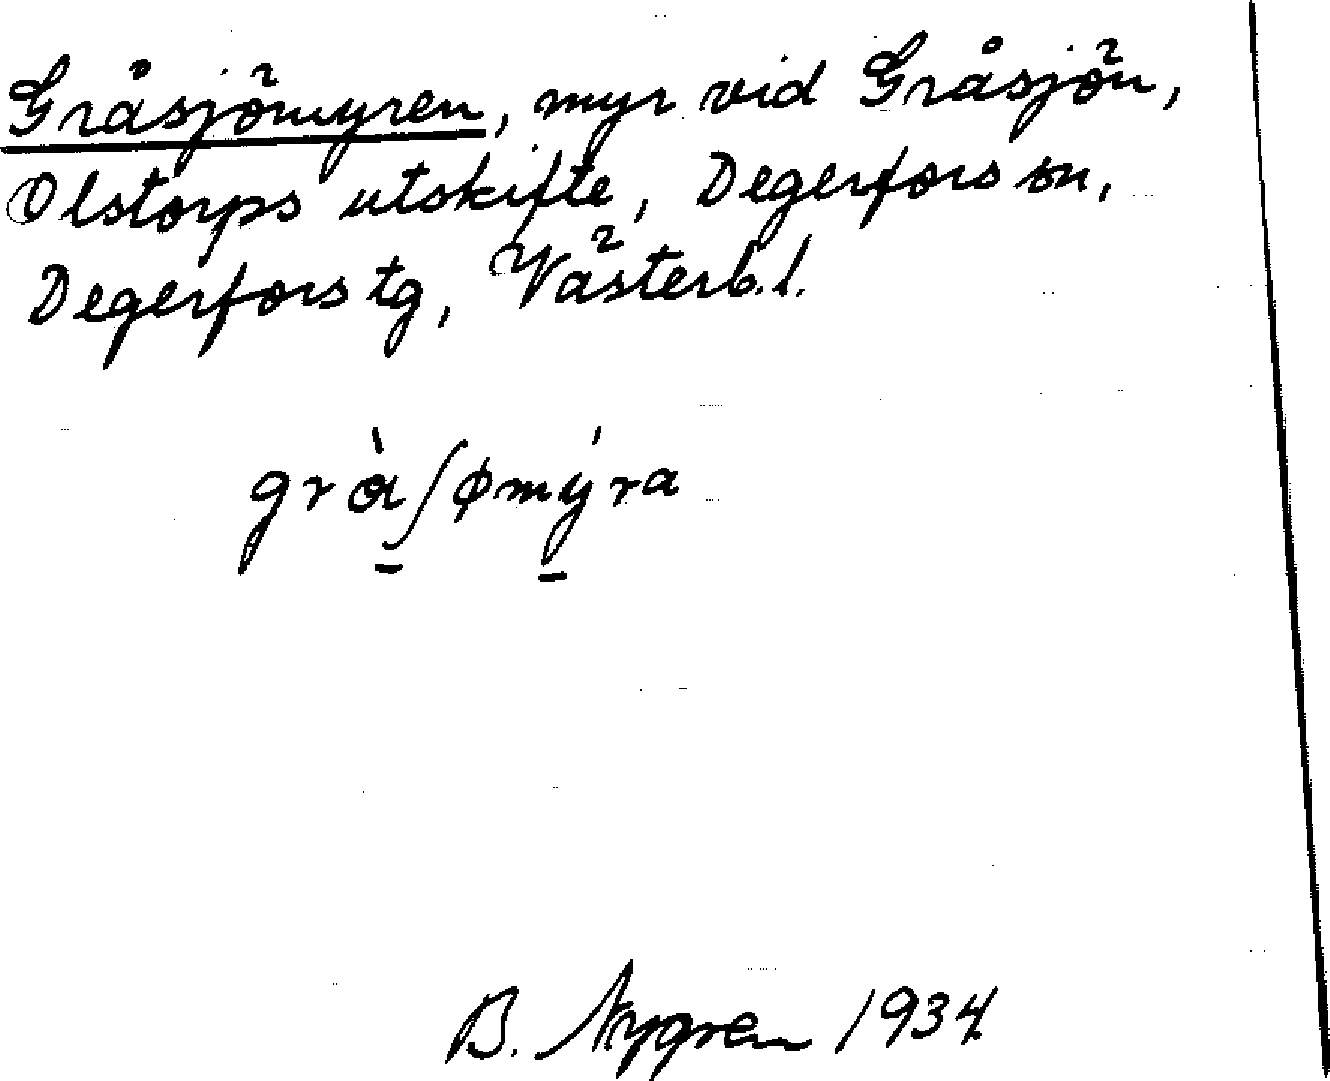 Gråsjömyren, myr vid Gråsjön,
Olstorps utskifte, Degerfors sn,
Degerfors tg, Västerb.l.
grὰʃømýra
B. Nygren 1934